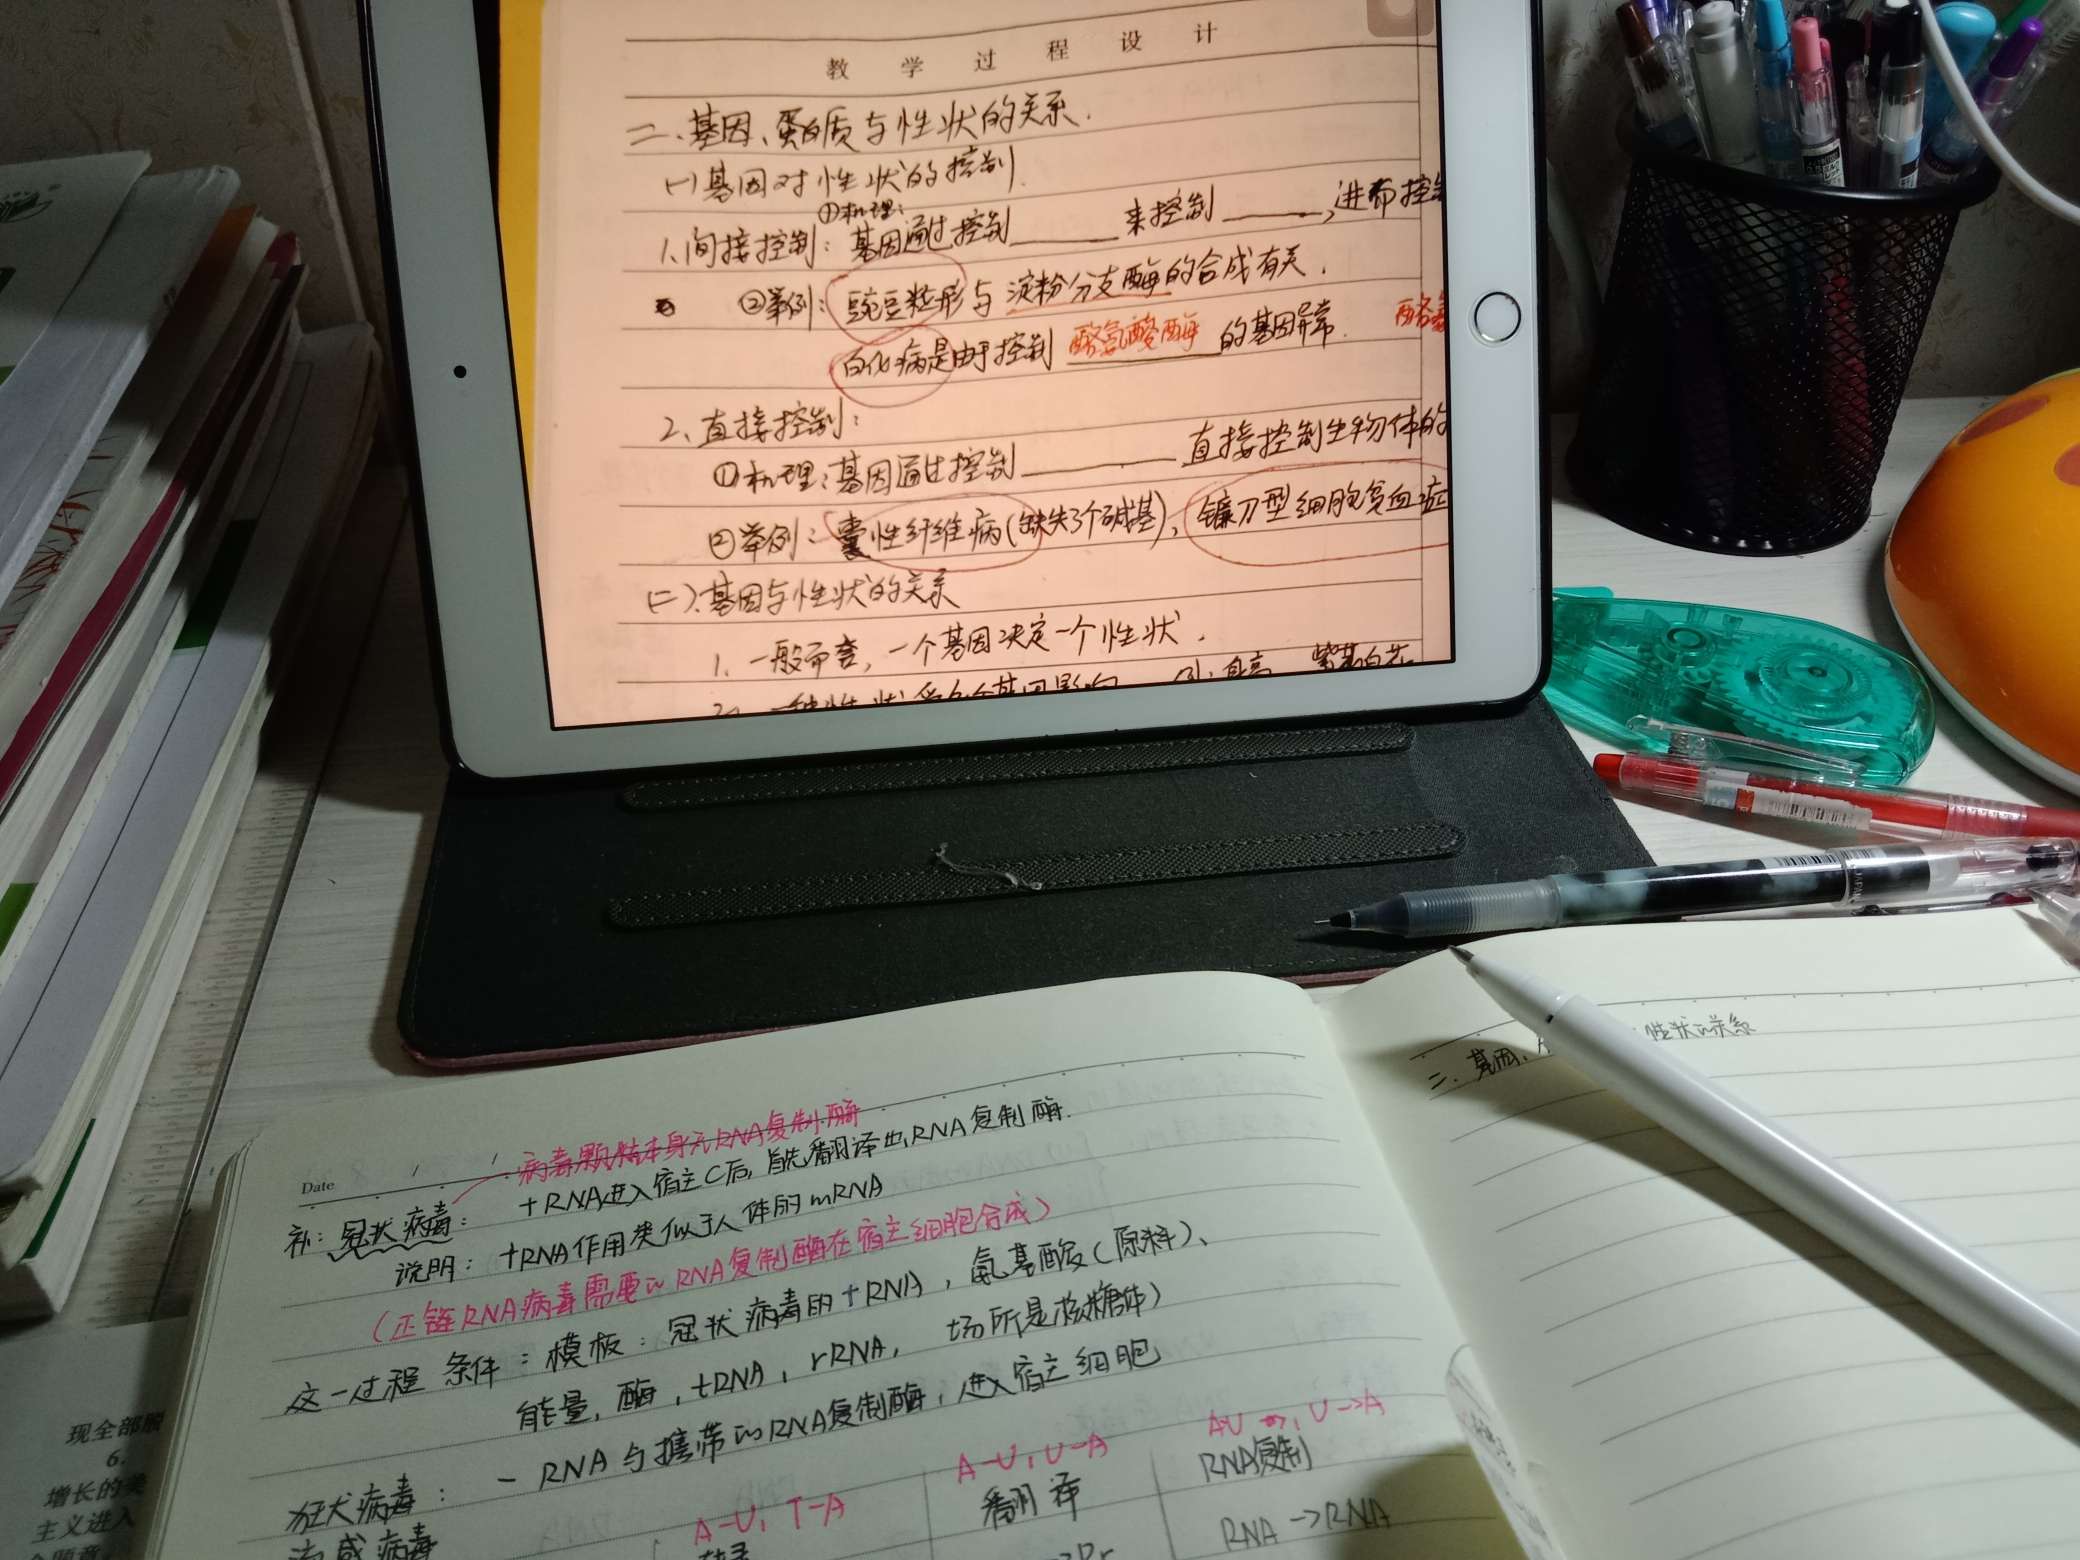 教 学 过 程 设 计
二、基因、蛋白质与性状的关系.
(一)基因对性状的控制.
①机理:
1、间接控制: 基因通过控制______来控制______,进而控制
②举例: 豌豆粒形与淀粉分支酶的合成有关.
白化病是由于控制 酪氨酸酶 的基因异常. 酪氨
2、直接控制:
①机理:基因通过控制________直接控制生物体的
②举例: 囊性纤维病(缺失3个碱基), 镰刀型细胞贫血症
(二).基因与性状的关系
1. 一般而言, 一个基因决定一个性状.
2. 一种性状受多个基因影响 例:身高
Date
病毒颗粒本身无RNA复制酶
补: 冠状病毒: +RNA进入宿主C后, 首先翻译出RNA复制酶.
说明: +RNA作用类似于人体的mRNA
(正链RNA病毒需要的RNA复制酶在宿主细胞合成)
这一过程 条件: 模板: 冠状病毒的+RNA, 氨基酸(原料)、
能量, 酶, tRNA, rRNA, 场所是核糖体)
狂犬病毒: - RNA与携带的RNA复制酶, 进入宿主细胞
流感病毒
A-U, T-A
A-U, U-A
翻译
U->A
RNA复制
RNA->RNA
二. 基因,
性状的关系
现全部服
6.
增长的类
主义进入